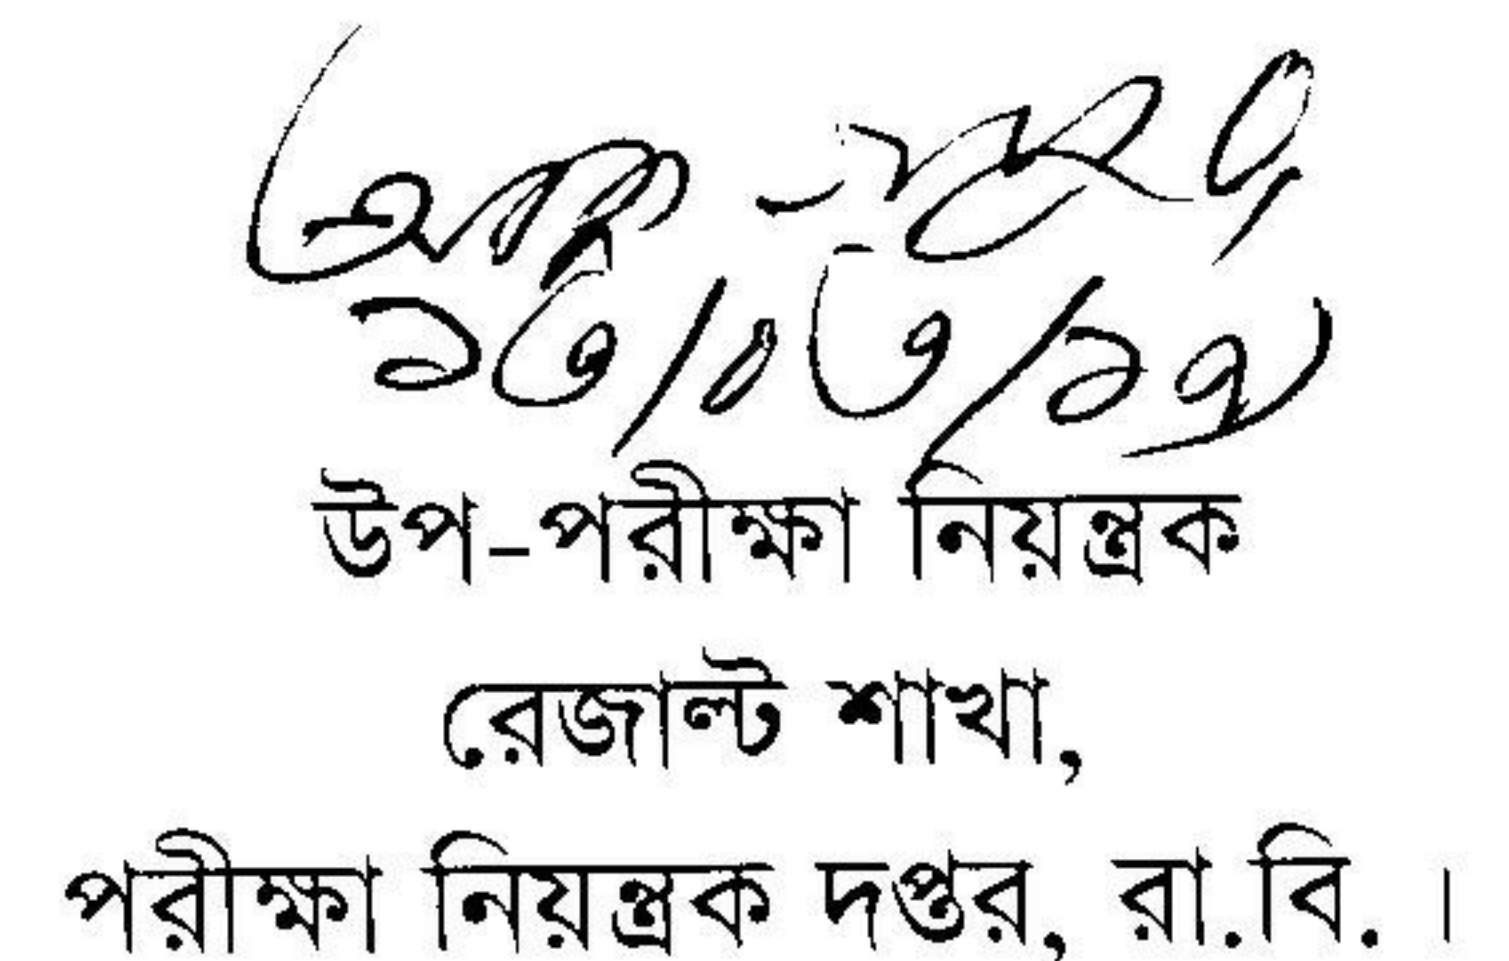 ১৩/০৩/১৭
উপ-পরীক্ষা নিয়ন্ত্রক
রেজাল্ট শাখা,
পরীক্ষা নিয়ন্ত্রক দপ্তর, রা.বি. ।